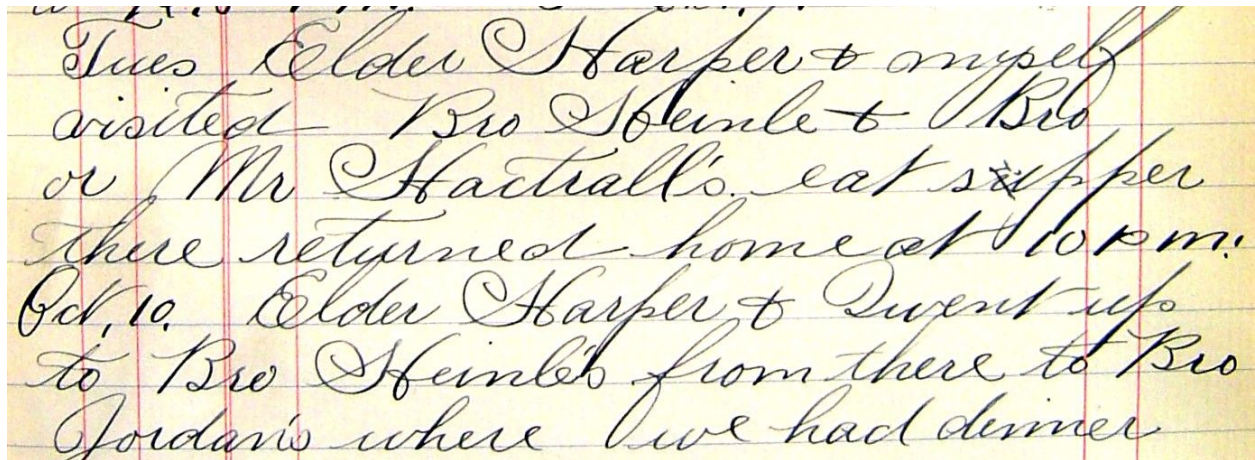 Tues Elder Harper & myself
visited Bro Heinle & Bro
or Mr Hactrall's. eat supper
there returned home at 10 pm.
Oct, 10. Elder Harper & I went up
to Bro Heinle's from there to Bro
Jordan's where we had dinner